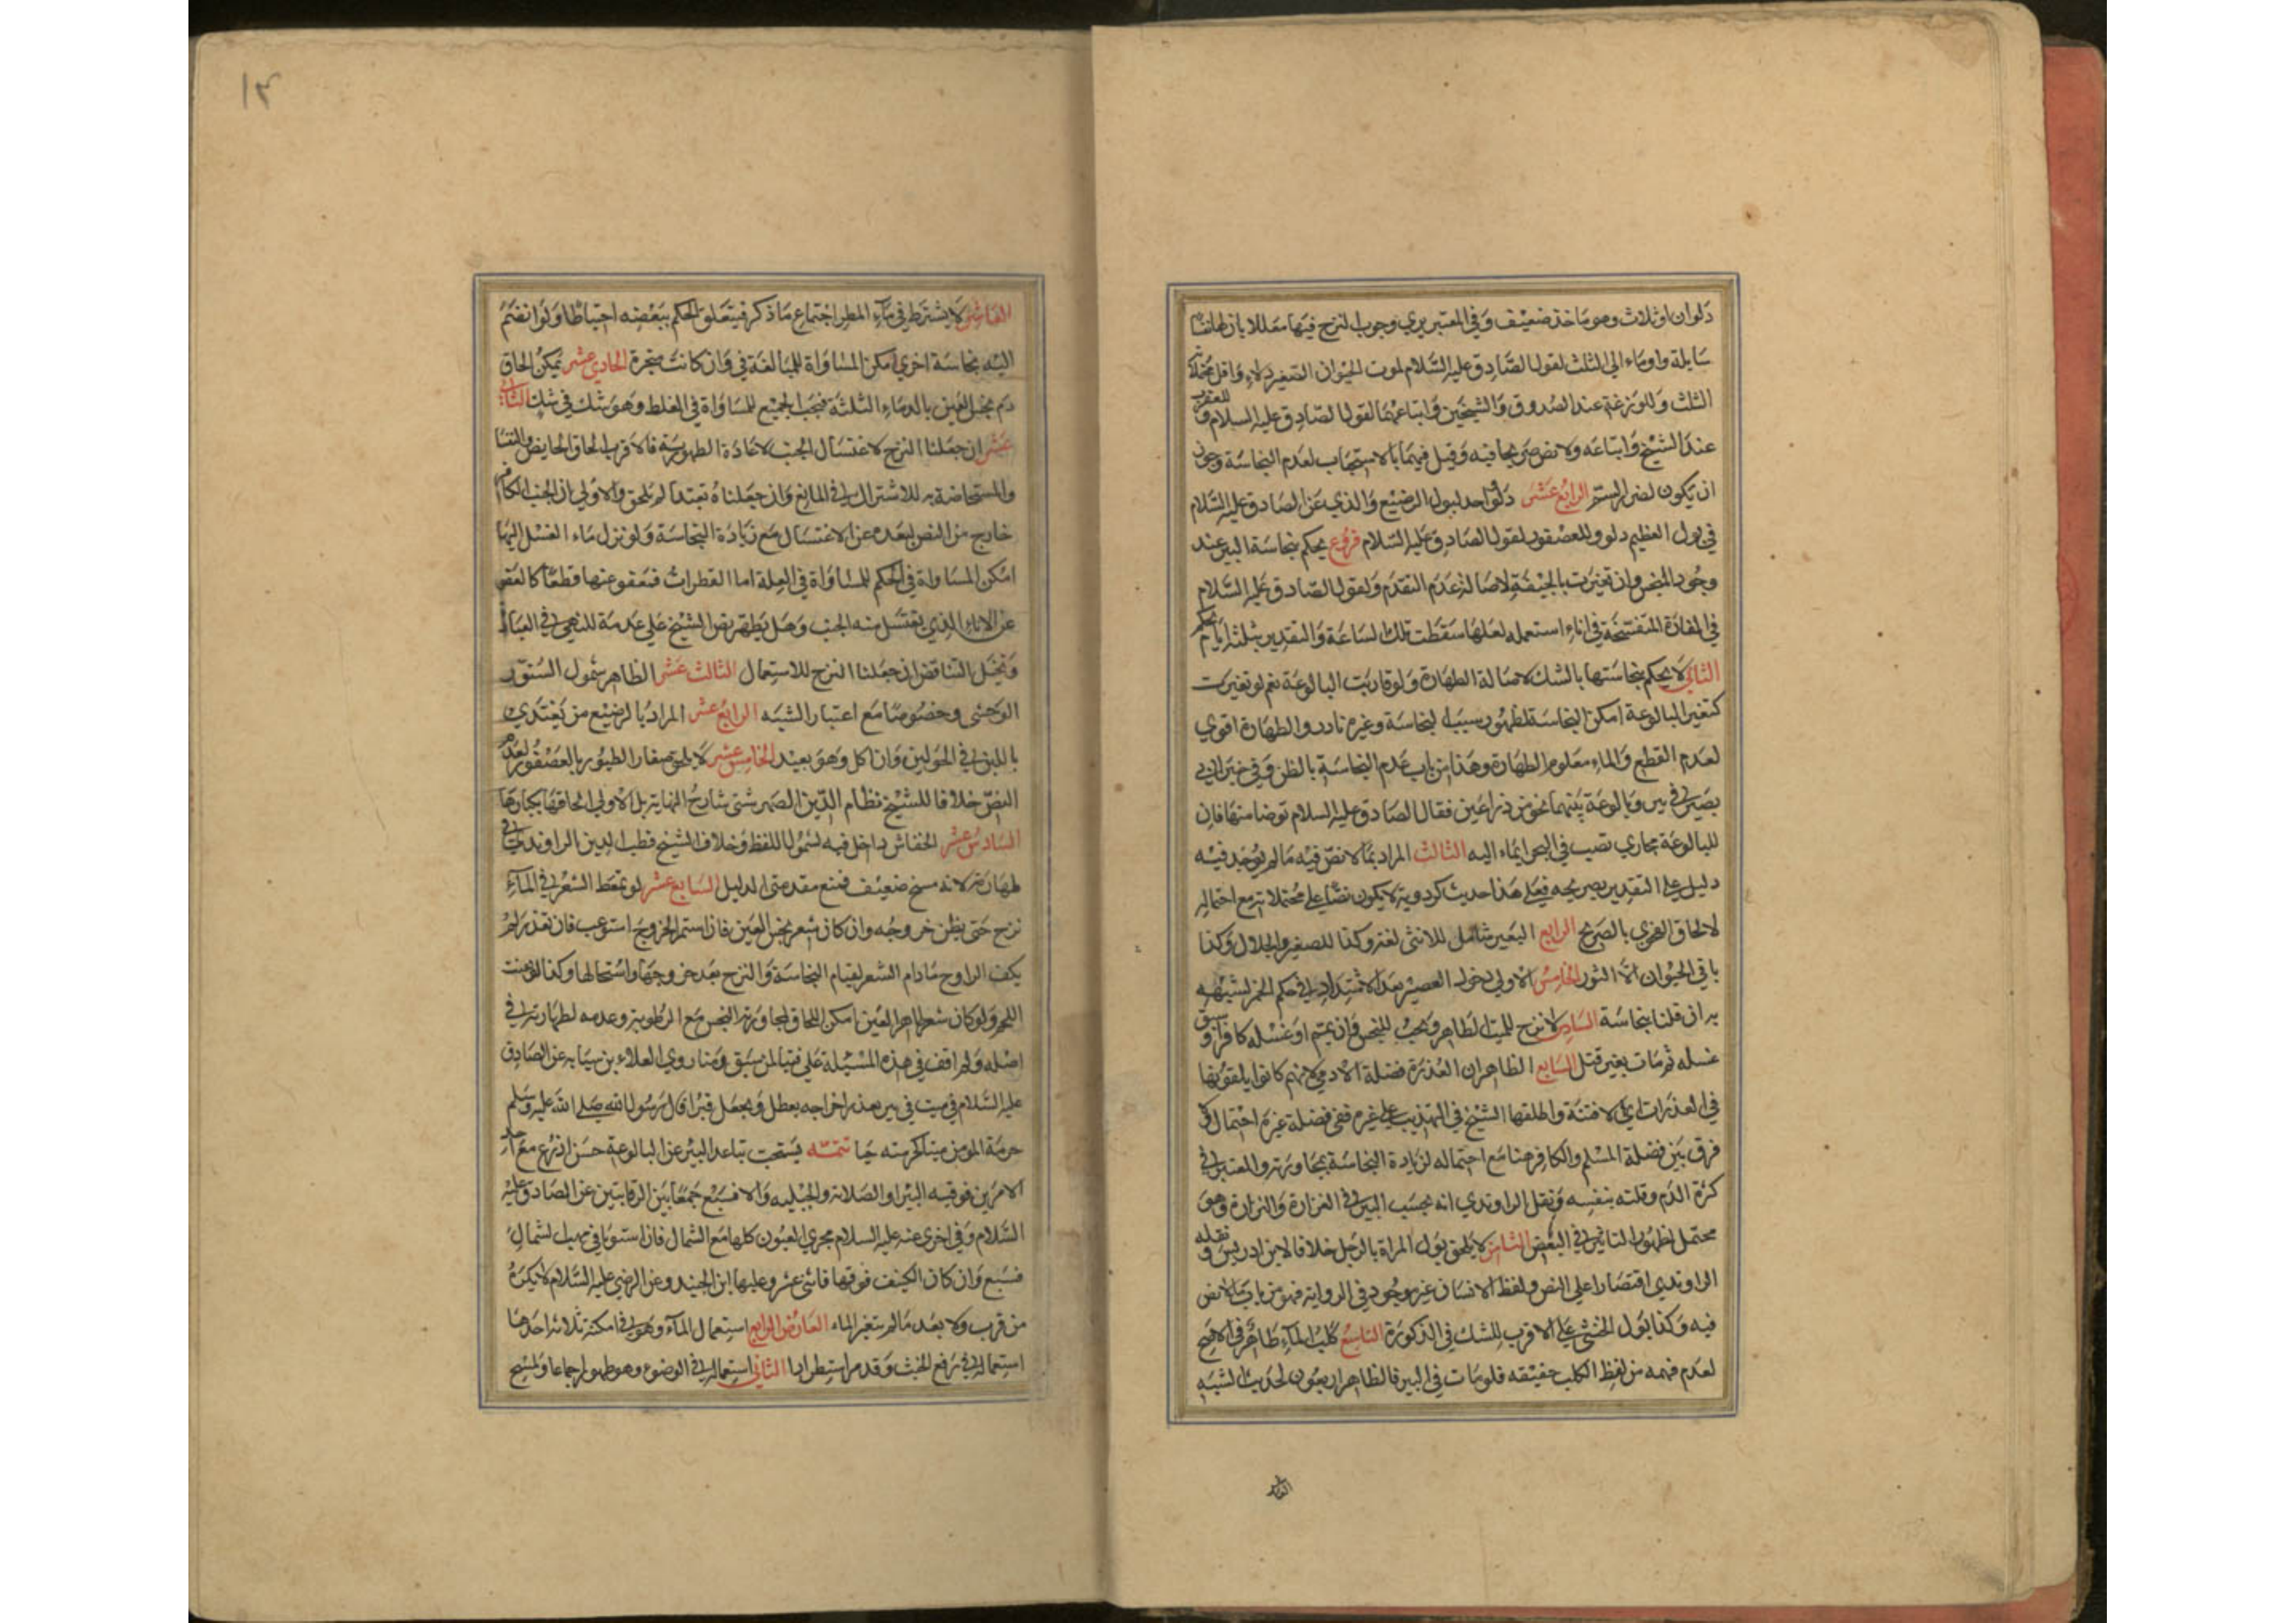 دلوان او ثلاث وهو ماخذ ضعيف وفي المعتبر يري وجوب النزح فيها معللا بان لها نفسا
سايلة واوماء الي الثلث لقول الصادق عليه السلام لموت الحيوان الصغير دلاء واقل محتملاته
الثلث وللوزغة عند الصدوق والشيخين واتباعهما لقول الصادق عليه السلام وللعقرب
عند الشيخ واتباعه ولا نص صريحا فيه وقيل فيهما بالاستحباب لعدم النجاسة وجوز
ان يكون لضرر السم الرابع عشر دلو واحد لبول الرضيع والذي عن الصادق عليه السلام
في بول الفطيم دلو وللعصفور لقول الصادق عليه السلام فروع يحكم بنجاسة البير عند
وجود المنجس وان تغيرت بالجيفة لاصالة عدم التقدم ولقول الصادق عليه السلام
في الفارة المتفسخة في اناء استعمله لعلها سقطت تلك الساعة والتقدير بثلثة ايام تحكم
الثاني لا يحكم بنجاستها بالشك لاصالة الطهارة ولو قاربت البالوعة نعم لو تغيرت
كتغير البالوعة امكن النجاسة لظهور سببية النجاسة وغيره نادر والطهارة اقوي
لعدم القطع والماء معلوم الطهارة وهذا من باب عدم النجاسة بالظن وفي خبر ابي
بصير في بير وبالوعة بينهما نحو من ذراعين فقال الصادق عليه السلام توضا منها فان
للبالوعة مجاري تصب في البحر ايماء اليه الثالث المراد بما لا نص فيه ما لم يوجد فيه
دليل علي التقدير بصريحه فعلي هذا حديث كردوية لا يكون نصا علي محتملاته مع احتماله
لالحاق الفحوي بالصريح الرابع البعير شامل للانثي لغة وكذا للصغير والجلال وكذا
باقي الحيوان الا الثور الخامس الاولي دخول العصير بعد الاشتداد في حكم الخمر لشبهه
به ان قلنا بنجاسة السادس لا نزح للميت الطاهر ويجب للنجس وان يمم او غسله كافر او سبق
غسله ثم مات بغير قتل السابع الظاهر ان العذرة فضلة الادمي لانهم كانوا يلقونها
في العذرات اي الافنية واطلقها الشيخ في التهذيب علي غيره ففي فضلة غيره احتمال ولا
فرق بين فضلة المسلم والكافر هنا مع احتماله لزيادة النجاسة بمجاورته والمعتبر في
كثرة الدم وقلته بنفسه ونقل الراوندي انه بحسب البير في الغزارة والنزارة وهو
محتمل لظهور التاثير في البعض الثامن لا يلحق بول المراة بالرجل خلافا لابن ادريس ونقله
الراوندي اقتصارا علي النص ولفظ الانسان غير موجود في الرواية فهو من باب ما لا نص
فيه وكذا بول الخنثي علي الاقرب للشك في الذكورة التاسع كلب الماء طاهر في الاصح
لعدم فهمه من لفظ الكلب حقيقه فلو مات في البير فالظاهر اربعون لحديث الشبه
العاشر
١٣
العاشر لا يشترط في ماء المطر اجتماع ما ذكر فيتعلق الحكم ببعضه احتياطا ولو انضم
اليه نجاسة اخري امكن المساواة للمبالغة في وان كانت مبخرة الحادي عشر يمكن الحاق
دم نجس العين بالدماء الثلثة فيجب الجميع للمساواة في الغلظ وهو شك في شك الثاني
عشر ان جعلنا النزح لاغتسال الجنب لاعادة الطهورية فالاقرب الحاق الحايض والنفسا
والمستحاضة به للاشتراك في المانع وان جعلناه تعبدا لم يلحق والاولي ان الجنب الكافر
خارج من النص لبعده عن الاغتسال مع زيادة النجاسة ولو نزل ماء الغسل اليها
امكن المساواة في الحكم للمساواة في العلة اما القطرات فمعفو عنها قطعا كالعفو
عن الاناء الذي يغتسل منه الجنب وهل يطهر نص الشيخ علي عدمه للنهي في العبادة
وتخيل التناقض ان جعلنا النزح للاستعمال الثالث عشر الظاهر شمول السنور
الوحشي وخصوصا مع اعتبار الشبه الرابع عشر المراد بالرضيع من يغتذي
باللبن في الحولين وان اكل وهو بعيد الخامس عشر لا يلحق صغار الطيور بالعصفور لعدم
النص خلافا للشيخ نظام الدين الصهرشتي شارح النهاية بل الاولي الحاقها بكبارها
السادس عشر الخفاش داخل فيه لشمول اللفظ وخلاف الشيخ قطب الدين الراوندي في
طهارته لانه مسخ ضعيف فنمنع مقدمتي الدليل السابع عشر لو تمعط الشعر في الماء
نزح حتي يظن خروجه وان كان شعر نجس العين فان استمر الخروج استوعب فان تعذر لم
يكف التراوح ما دام الشعر لقيام النجاسة والنزح بعد خروجها واستحالتها وكذا لو تفتت
اللحم ولو كان شعر طاهر العين امكن اللحاق لمجاورته النجس مع الرطوبة وعدمه لطهارته في
اصله ولم اقف في هذه المسئلة علي فتيا لمن سبق ومنا روي العلاء بن سيابه عن الصادق
عليه السلام في ميت في بير تعذر اخراجه يعطل ويجعل قبرا قال رسول الله صلي الله عليه وسلم
حرمة المومن ميتا كحرمته حيا تتمة يستحب تباعد البير عن البالوعة خمس اذرع مع احد
الامرين فوقيه البير او الصلابة والجبليه والا فسبع جمعا بين الروايتين عن الصادق عليه
السلام وفي اخري عنه عليه السلام مجري العيون كلها مع الشمال فان استويا في مهب الشمال
فسبع وان كان الكنيف فوقها فاثني عشر وعليها ابن الجنيد وعن الرضي عليه السلام لا يكره
من قرب ولا بعد ما لم يتغير الماء العارض الرابع استعمال الماء وهو في امكنة ثلاثة احدها
استعماله في رفع الخبث وقد مر استطرادا الثاني استعماله في الوضوء وهو طهور اجماعا ولمسح